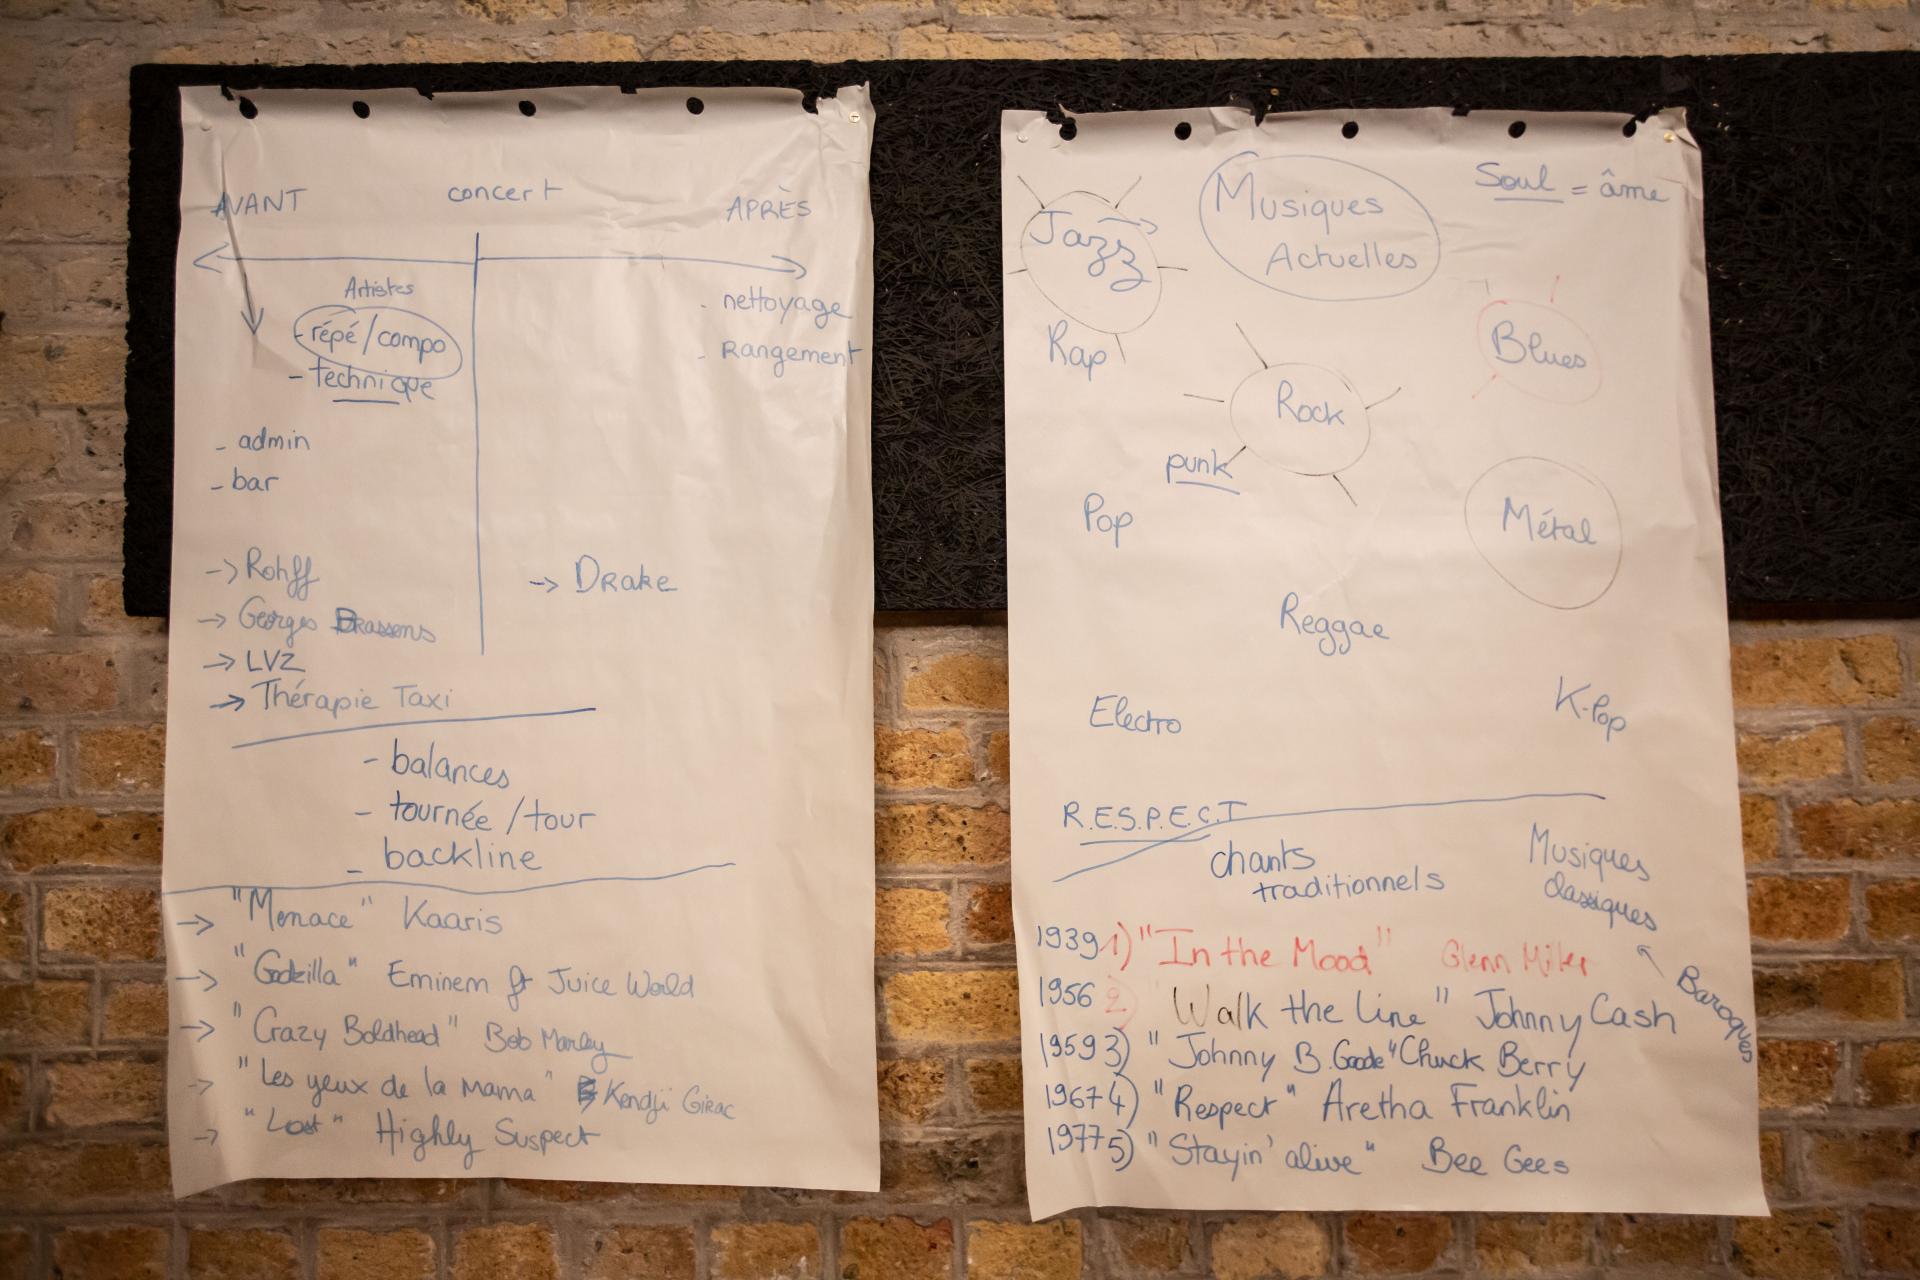 AVANT concert APRÈS
Artistes
- répé/compo
- technique
- nettoyage
- Rangement
- admin
- bar
-> Rohff
-> Georges Brassens
-> LVZ
-> Thérapie Taxi
-> Drake
- balances
- tournée / tour
- backline
-> "Menace" Kaaris
-> "Godzilla" Eminem ft Juice World
-> "Crazy Boldhead" Bob Marley
-> "Les yeux de la Mama" Kendji Girac
-> "Lost" Highly Suspect
Musiques
Actuelles
Soul = âme
Jazz
Rap
Blues
Rock
punk
Pop
Métal
Reggae
Electro
K-Pop
R.E.S.P.E.C.T
chants
traditionnels
Musiques
classiques
Baroques
1939 1) "In the Mood" Glenn Miller
1956 2) "Walk the Line" Johnny Cash
1959 3) "Johnny B. Goode" Chuck Berry
1967 4) "Respect" Aretha Franklin
1977 5) "Stayin' alive" Bee Gees